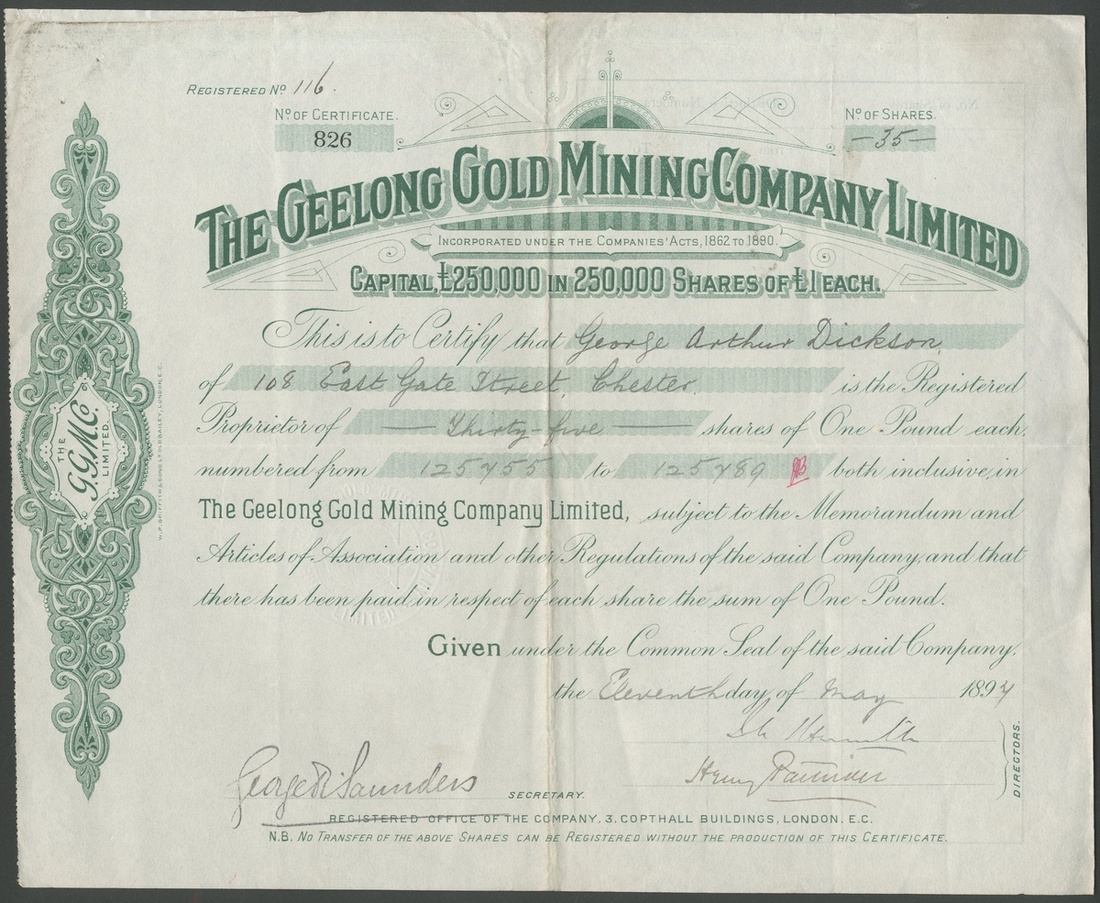 REGISTERED No. 116.
No. OF CERTIFICATE.
826
No. OF SHARES.
— 35 —
THE GEELONG GOLD MINING COMPANY LIMITED
INCORPORATED UNDER THE COMPANIES' ACTS, 1862 TO 1890.
CAPITAL, £250,000 IN 250,000 SHARES OF £1 EACH.
This is to Certify that George Arthur Dickson
of 108 East Gate Street, Chester. is the Registered
Proprietor of — Thirty-five — shares of One Pound each,
numbered from 125455 to 125489 both inclusive, in
The Geelong Gold Mining Company Limited, subject to the Memorandum and
Articles of Association and other Regulations of the said Company, and that
there has been paid in respect of each share the sum of One Pound.
Given under the Common Seal of the said Company.
the Eleventh day of May 1894
Henry
DIRECTORS.
George Saunders
SECRETARY.
REGISTERED OFFICE OF THE COMPANY, 3, COPTHALL BUILDINGS, LONDON, E.C.
N.B. NO TRANSFER OF THE ABOVE SHARES CAN BE REGISTERED WITHOUT THE PRODUCTION OF THIS CERTIFICATE.
THE
G.G.M.Co.
LIMITED.
LONDON, E.C.